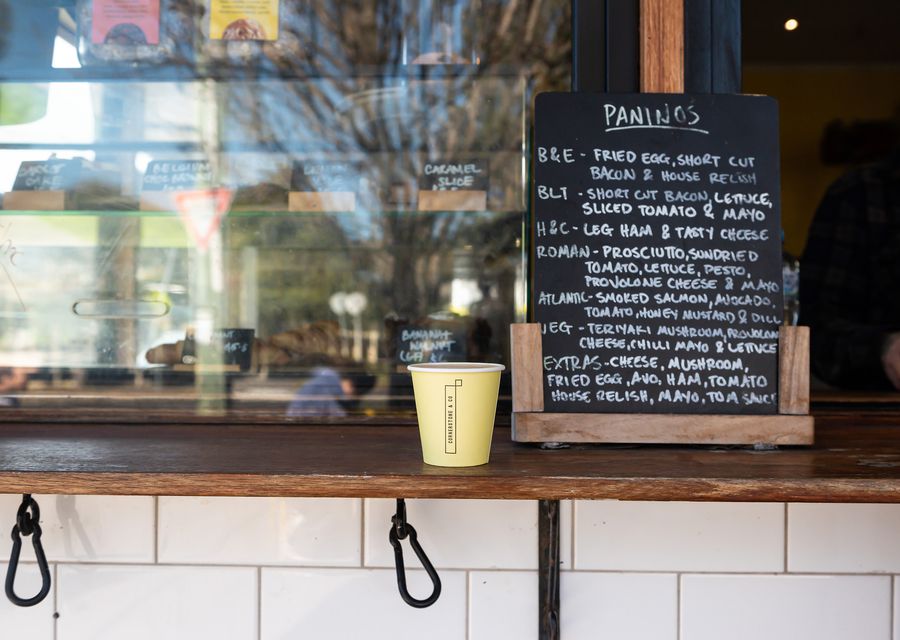 PANINOS
B&E - FRIED EGG, SHORT CUT
BACON & HOUSE RELISH
BLT - SHORT CUT BACON, LETTUCE,
SLICED TOMATO & MAYO
H&C - LEG HAM & TASTY CHEESE
ROMAN - PROSCIUTTO, SUNDRIED
TOMATO, LETUCE, PESTO,
PROVOLONE CHEESE & MAYO
ATLANTIC - SMOKED SALMON, AVOCADO,
TOMATO, HONEY MUSTARD & DILL
VEG - TERIYAKI MUSHROOM, PROVOLONE
CHEESE, CHILLI MAYO & LETTUCE
EXTRAS - CHEESE, MUSHROOM,
FRIED EGG, AVO, HAM, TOMATO
HOUSE RELISH, MAYO, TOM SAUCE
CARAMEL
SLICE
BANANA
WALNUT
CORNERSTONE & CO